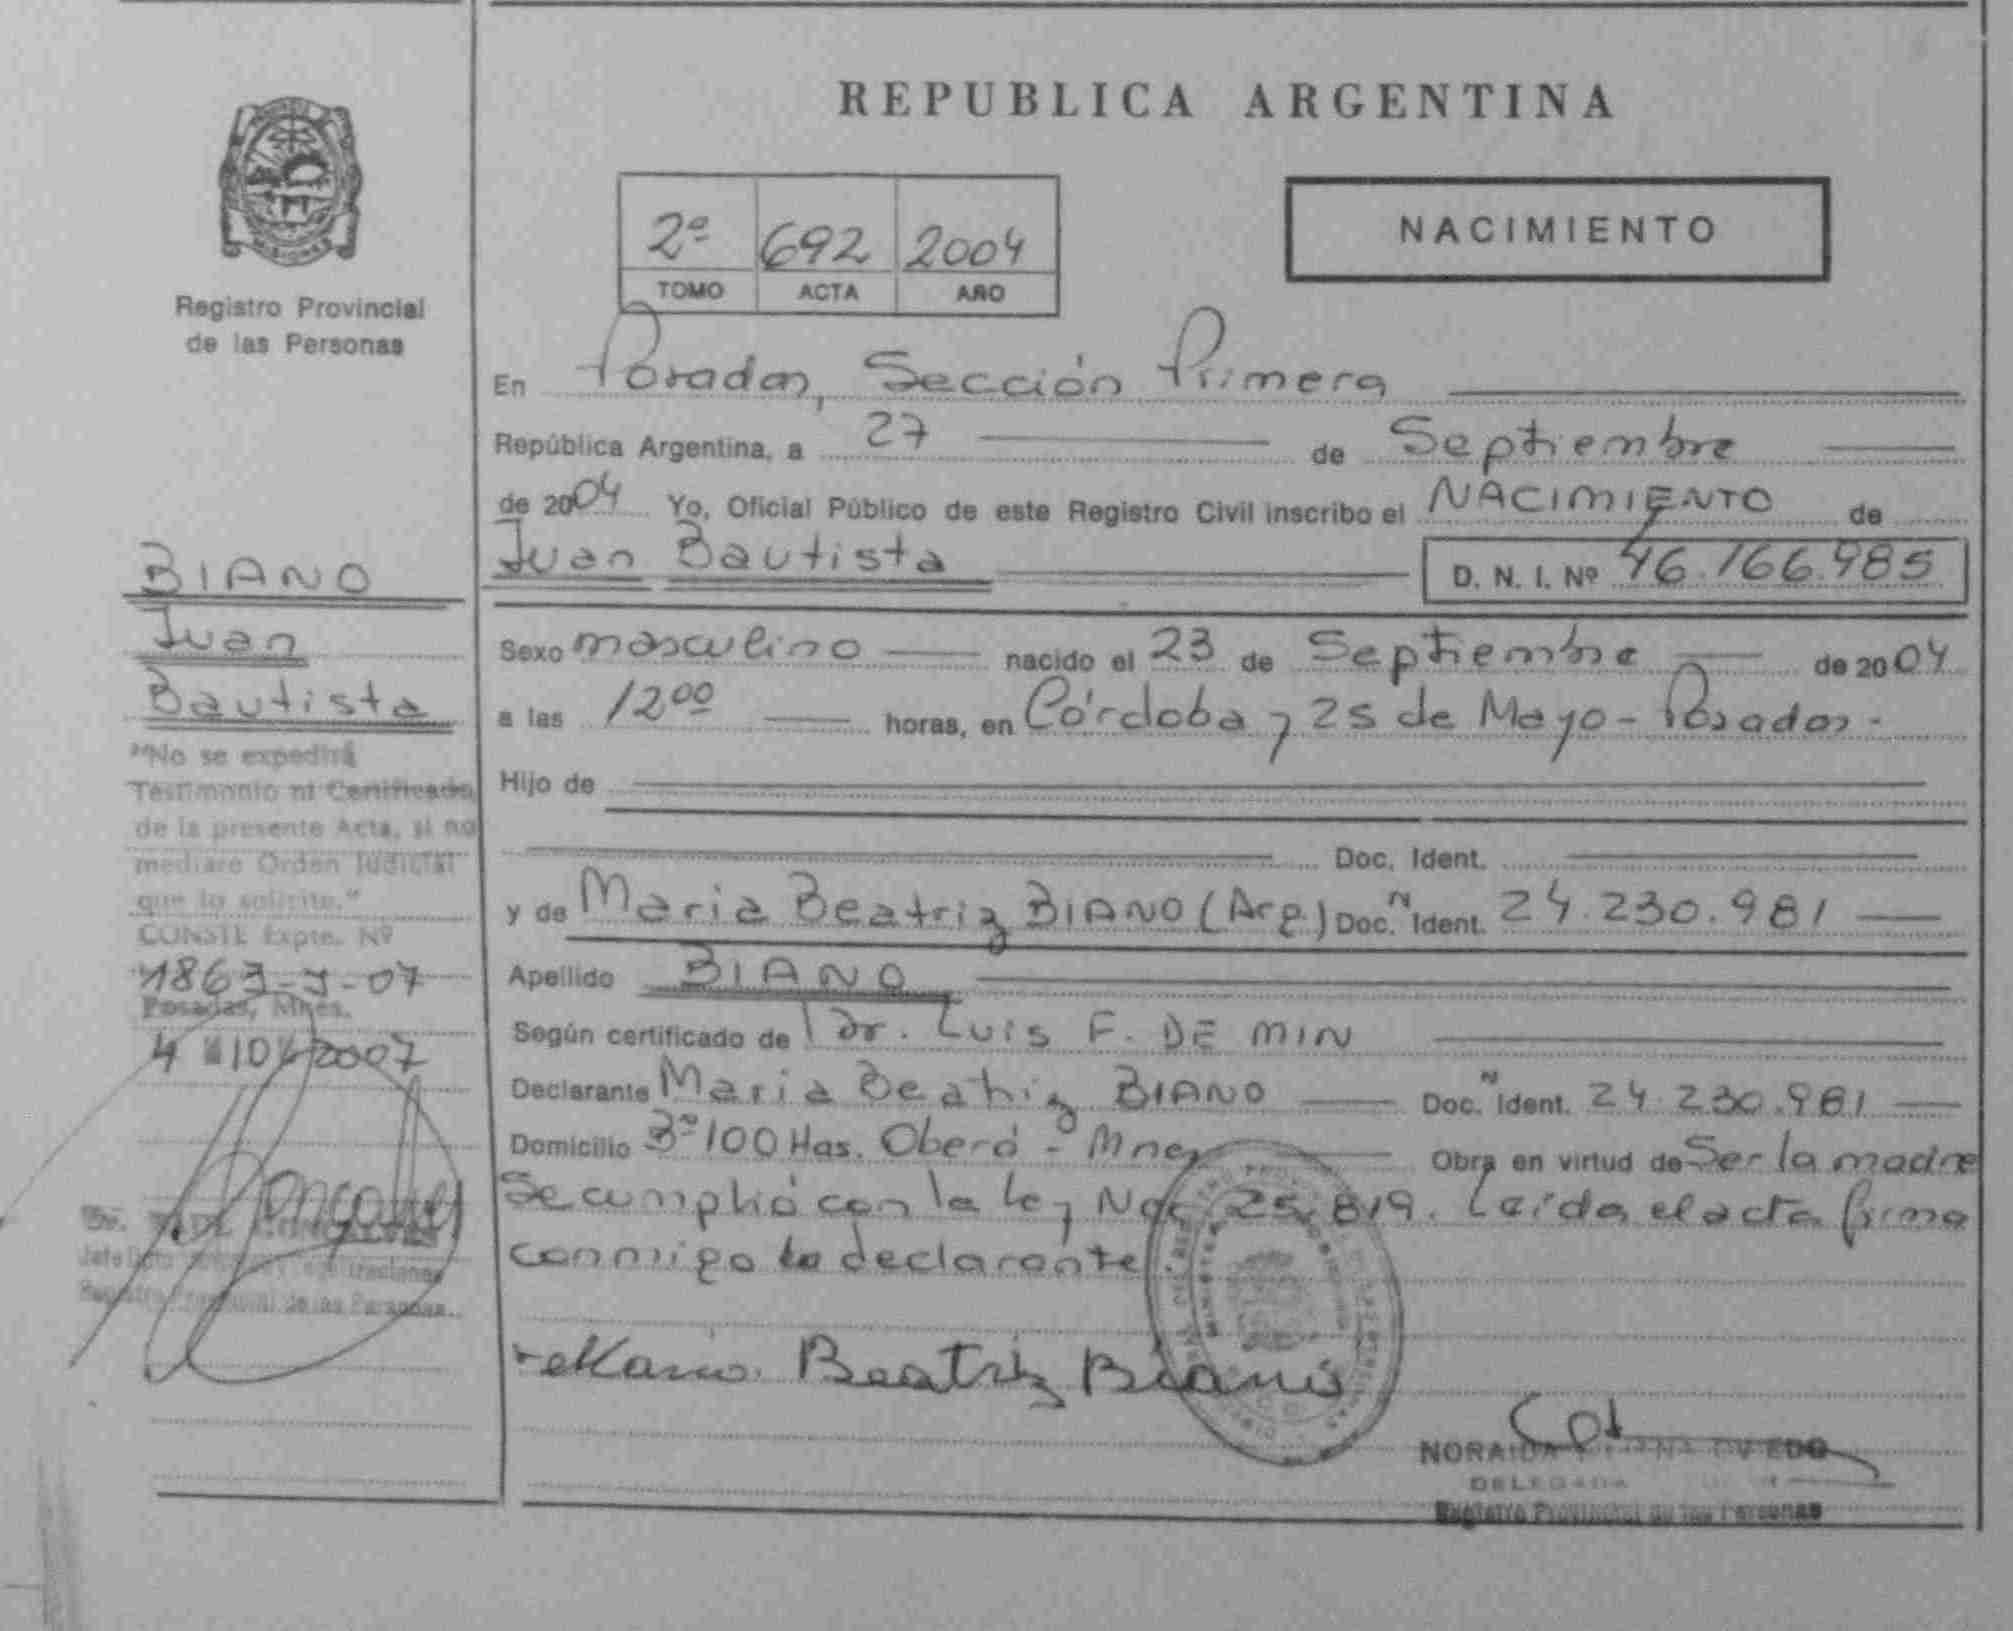 REPUBLICA ARGENTINA
Registro Provincial
de las Personas
2º 692 2004
TOMO ACTA AÑO
NACIMIENTO
En Posadas, Sección Primera
República Argentina, a 27 de Septiembre
de 2004 Yo, Oficial Público de este Registro Civil inscribo el NACIMIENTO de
Juan Bautista D. N. I. Nº 46.166.985
Sexo masculino nacido el 23 de Septiembre de 2004
a las 12 00 horas, en Córdoba y 25 de Mayo - Posadas.
Hijo de
Doc. Ident.
y de Maria Beatriz BIANO (Arg.) Doc. N Ident. 24.230.981
Apellido BIANO
Según certificado de Dr. Luis F. DE MIN
Declarante Maria Beatriz BIANO Doc. N Ident. 24.230.981
Domicilio 3º 100 Has. Oberá - Mnes Obra en virtud de Ser la madre
Se cumplió con la ley Nac. 25.819. Leída el acta firma
conmigo la declarante.
Maria Beatriz Biano
NORAIDA OVIEDO
DELEGADA
Registro Provincial de las Personas
BIANO
Juan
Bautista
"No se expedirá
Testimonio ni Certificado
de la presente Acta, si no
mediare Orden Judicial
que lo solicite."
CONSTE Expte. Nº
1863-J-07
Posadas, Mnes.
4 10 2007
Registro Provincial de las Personas